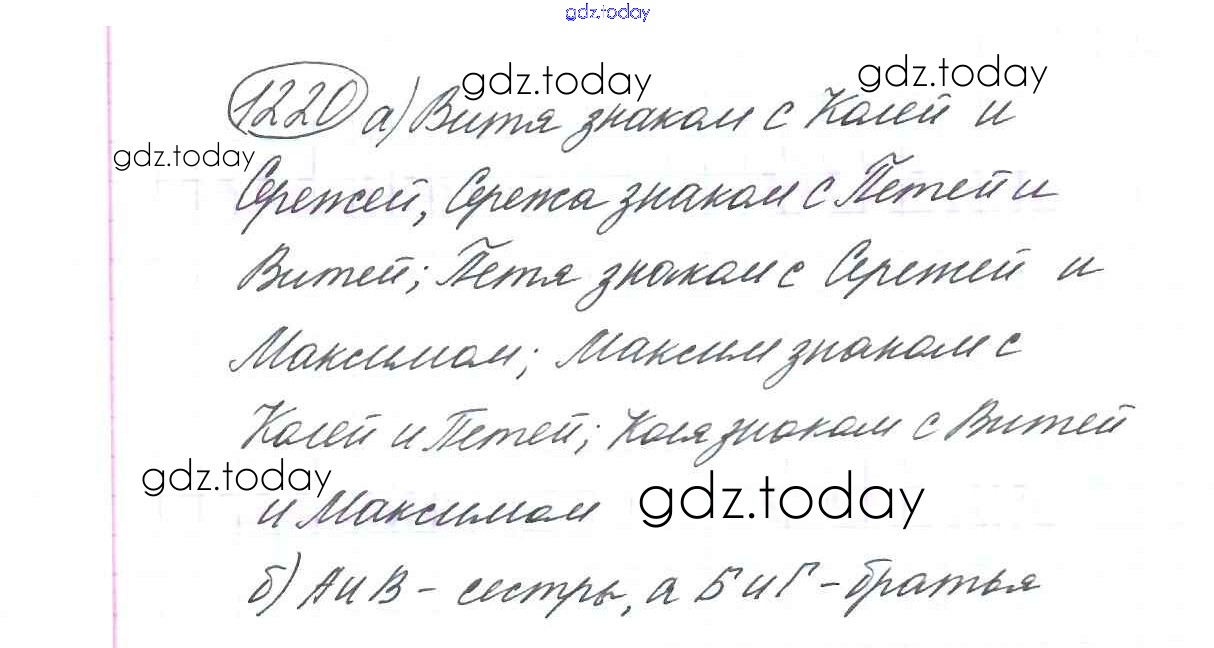 gdz.today
gdz.today gdz.today
1220 а) Витя знаком с Колей и
gdz.today
Сережей, Сережа знаком с Петей и
Витей; Петя знаком с Сережей и
Максимом; Максим знаком с
Колей и Петей; Коля знаком с Витей
gdz.today gdz.today
и Максимом
б) А и В - сестры, а Б и Г - братья